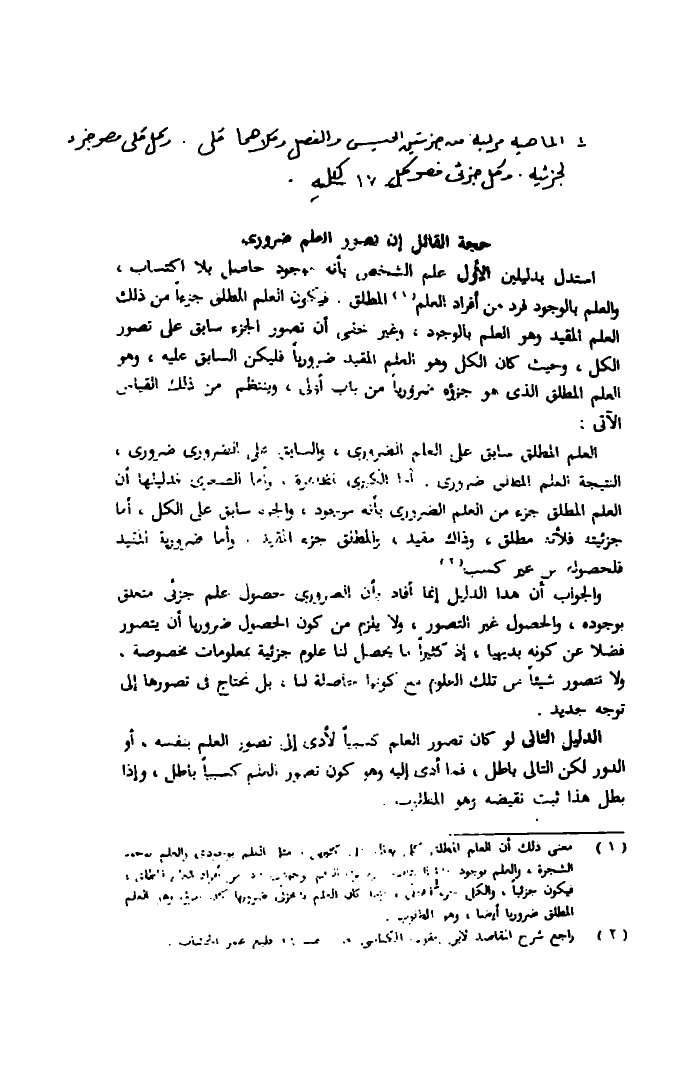 الماهيه مركبة من جزئين الجنس والفصل وكلاهما كلى . وكل كلى فهو جزء
لجزئيه . وكل جزئى فهو كل
حجة القائل إن تصور العلم ضرورى
استدل بدليلين الأول علم الشخص بأنه موجود حاصل بلا اكتساب ،
والعلم بالوجود فرد من أفراد العلم(١) المطلق . فيكون العلم المطلق جزءاً من ذلك
العلم المقيد وهو العلم بالوجود ، وغير خفى أن تصور الجزء سابق على تصور
الكل ، وحيث كان الكل وهو العلم المقيد ضرورياً فليكن السابق عليه ، وهو
العلم المطلق الذى هو جزؤه ضرورياً من باب أولى ، وينتظم من ذلك القياس
الآتى :
العلم المطلق سابق على العلم الضرورى ، والسابق على الضرورى ضرورى ،
النتيجة العلم المطلق ضرورى . أما الكبرى فظاهرة . وأما الصغرى فدليلها أن
العلم المطلق جزء من العلم الضرورى بأنه موجود ، والجزء سابق على الكل ، أما
جزئيته فلأنه مطلق ، وذاك مقيد ، والمطلق جزء المقيد . وأما ضرورية المقيد
فلحصوله من غير كسب(٢)
والجواب أن هذا الدليل إنما أفاد بأن الضرورى حصول علم جزئى متعلق
بوجوده ، والحصول غير التصور ، ولا يلزم من كون الحصول ضروريا أن يتصور
فضلا عن كونه بديهيا ، إذ كثيراً ما يحصل لنا علوم جزئية بمعلومات مخصوصة .
ولا نتصور شيئاً من تلك العلوم مع كونها حاصلة لنا ، بل نحتاج فى تصورها إلى
توجه جديد .
الدليل الثانى لو كان تصور العلم كسبياً لأدى إلى تصور العلم بنفسه . أو
الدور لكن التالى باطل ، فما أدى إليه وهو كون تصور العلم كسبياً باطل ، وإذا
بطل هذا ثبت نقيضه وهو المطلوب .
(١) معنى ذلك أن العلم المطلق كلى مثل العلم بوجودى والعلم بوجود
الشجرة ، والعلم بوجود من أفراد العلم المطلق ،
فيكون جزئياً ، والكل كان العلم الجزئى ضروريا وهو العلم
المطلق ضروريا أيضا ، وهو المطلوب .
(٢) راجع شرح المقاصد